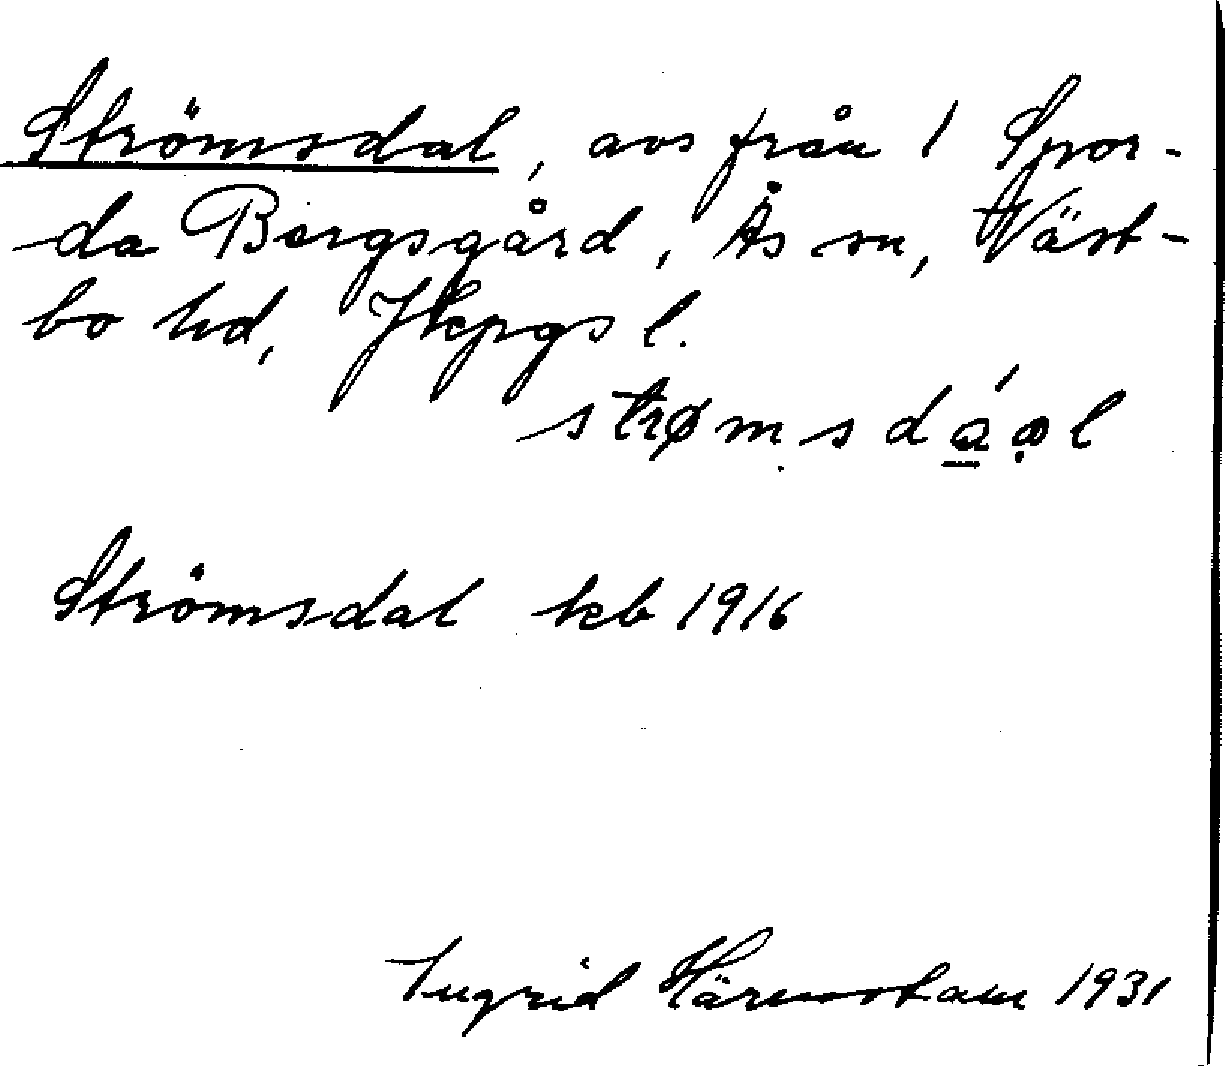 Strömsdal, avs från 1 Spor-
da Borgsgård, Ås sn, Väst-
bo hd, Jkpgs l.
strømsdáal
Strömsdal kb 1916
Ingrid Härenstam 1931